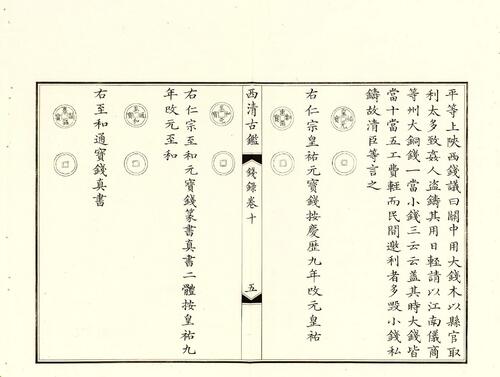 平等上陝西錢議曰關中用大錢本以縣官取
利太多致姦人盜鑄其用日輕請以江南儀商
等州大銅錢一當小錢三云云蓋其時大錢皆
當十當五工費輕而民間邀利者多毀小錢私
鑄故清臣等言之
右仁宗皇祐元寶錢按慶歷九年改元皇祐
西清古鑑
錢錄卷十
五
右仁宗至和元寶錢篆書真書二體按皇祐九
年改元至和
右至和通寶錢真書